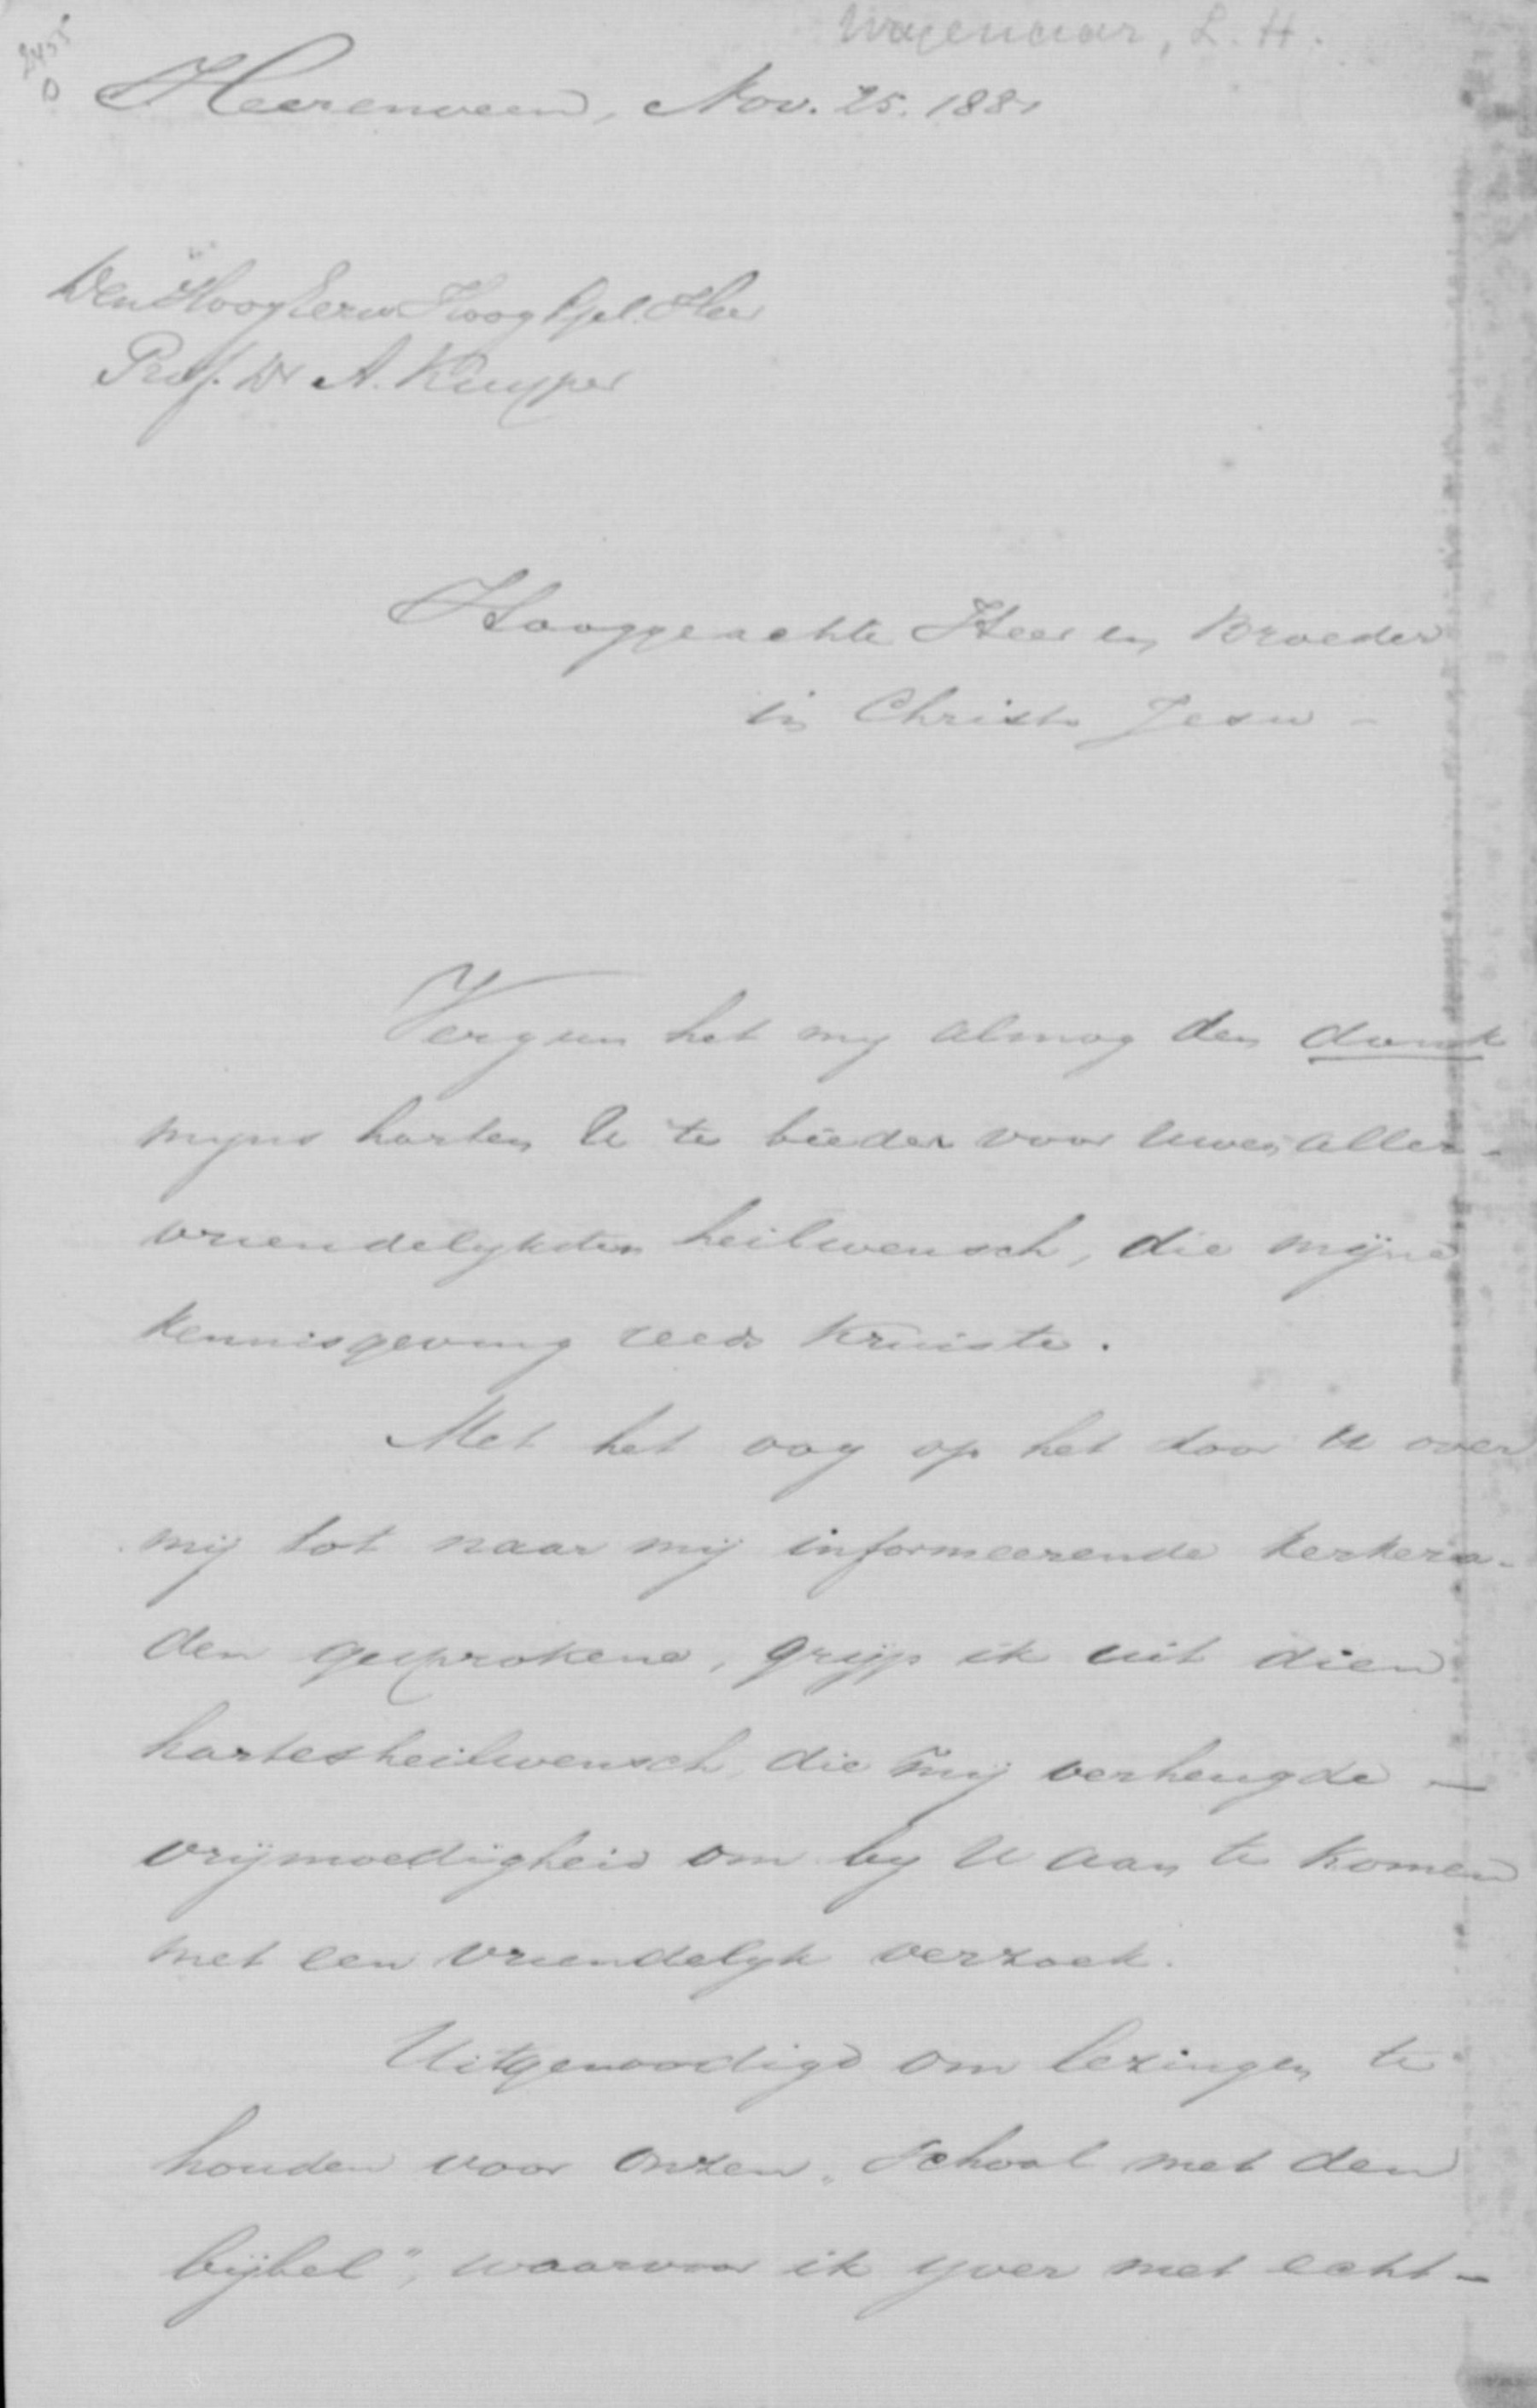 Wagenaar, L. H.
2455
Heerenveen, Nov. 25. 1881
Den HoogEerw HoogGel. Heer
Prof. Dr A. Kuyper
Hooggeachte Heer en Broeder
in Christo Jesu -
Vergun het my alnog den dank
myns harten U te bieden voor Uwen aller-
vriendelyksten heilwensch, die mijne
kennisgeving reeds kruiste.
Met het oog op het door U over
mij tot naar mij informeerende kerkera-
den gesprokene, grijp ik uit dien
harteheilwensch, die mij verheugde -
vrijmoedigheid om by U aan te komen
met een vriendelyk verzoek.
Uitgenoodigd om lezingen te
houden voor onzen „School met den
bijbel", waarvoor ik yver met echt-